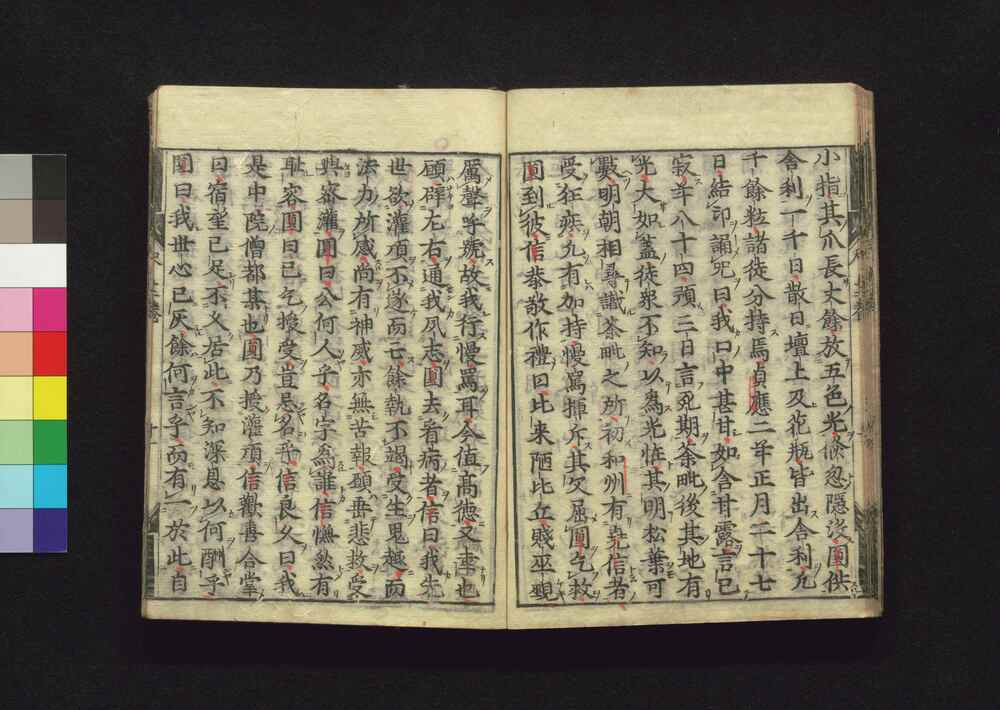 小指其爪長丈餘放五色光倏忽隱沒圓供
舍利一千日散日壇上及花瓶皆出舍利九
千餘粒諸徒分持焉貞應二年正月二十七
日結印誦咒曰我口中甚甘如含甘露言已
寂年八十四頂二日言死期荼毗後其地有
光大如蓋徒衆不知以為光恠其明松葉可
數明朝相尋識荼毗之所初和州有良信者
受狂疾九有加持慢罵揮斥其欠屈圓乞救
圓到彼信恭敬作禮曰比来陋比丘賤巫覡
厲聲呼號故我行慢罵耳今值高德又連也
願辟左右通我夙志圓去看病者信曰我先
世欲灌頂不遂而亡餘執不竭受生鬼趣而
法力所感尚有神威亦無苦報願垂悲救受
與密灌圓曰公何人乎名字為誰信憮然有
耻容圓曰已乞授受豈忌名乎信良久曰我
是中院僧都某也圓乃授灌頂信歡喜合掌
曰宿望已足不久居此不知深恩以何酬予
圓曰我世心已灰餘何言乎而有一於此自